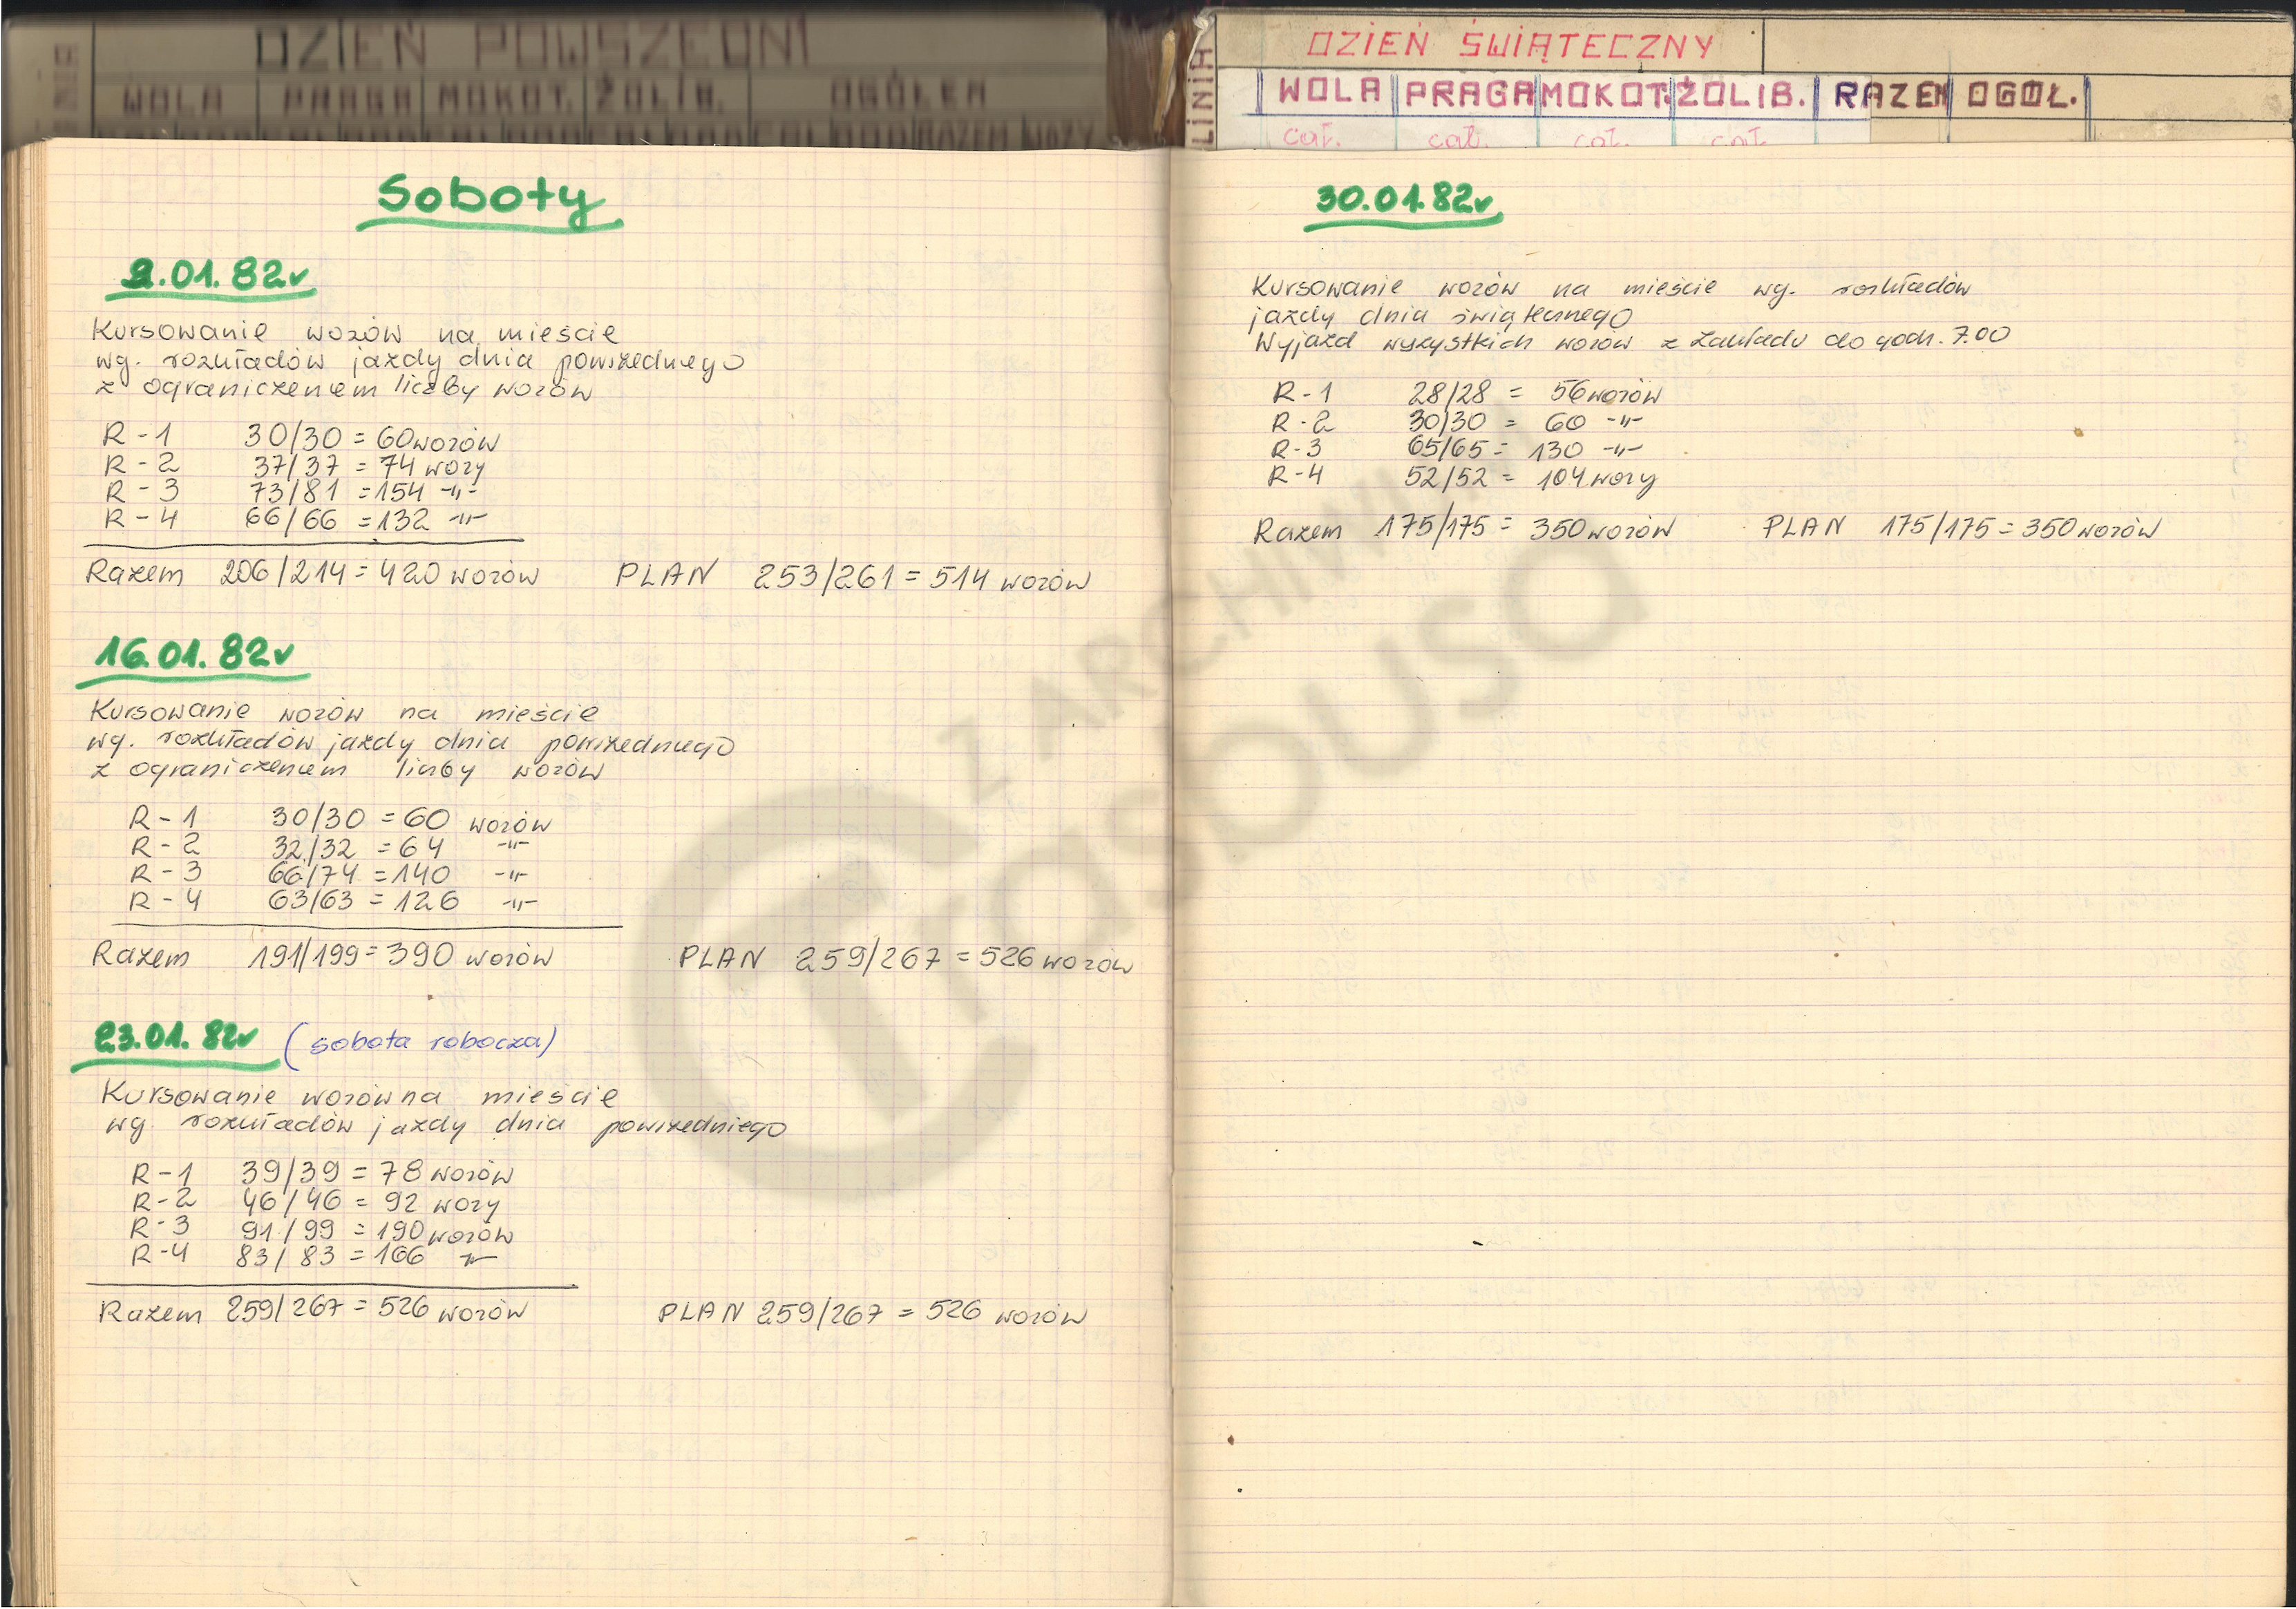 DZIEŃ POWSZEDNI
WOLA PRAGA MOKOT. ŻOLIB. OGÓŁEM
Soboty
2.01.82r
Kursowanie wozów na mieście
wg. rozkładów jazdy dnia powszedniego
z ograniczeniem liczby wozów
R-1 30/30 = 60 wozów
R-2 37/37 = 74 wozy
R-3 73/81 = 154 -"-
R-4 66/66 = 132 -"-
Razem 206/214 = 420 wozów PLAN 253/261 = 514 wozów
16.01.82r
Kursowanie wozów na mieście
wg. rozkładów jazdy dnia powszedniego
z ograniczeniem liczby wozów
R-1 30/30 = 60 wozów
R-2 32/32 = 64 -"-
R-3 66/74 = 140 -"-
R-4 63/63 = 126 -"-
Razem 191/199 = 390 wozów PLAN 259/267 = 526 wozów
23.01.82r (sobota robocza)
Kursowanie wozów na mieście
wg rozkładów jazdy dnia powszedniego
R-1 39/39 = 78 wozów
R-2 46/46 = 92 wozy
R-3 91/99 = 190 wozów
R-4 83/83 = 166 -"-
Razem 259/267 = 526 wozów PLAN 259/267 = 526 wozów
LINIA
DZIEŃ ŚWIĄTECZNY
WOLA PRAGA MOKOT. ŻOLIB. RAZEM OGÓŁ.
cał. cał. cał. cał.
30.01.82r
Kursowanie wozów na mieście wg. rozkładów
jazdy dnia świątecznego
Wyjazd wszystkich wozów z Zakładu do godz. 7.00
R-1 28/28 = 56 wozów
R-2 30/30 = 60 -"-
R-3 65/65 = 130 -"-
R-4 52/52 = 104 wozy
Razem 175/175 = 350 wozów PLAN 175/175 = 350 wozów